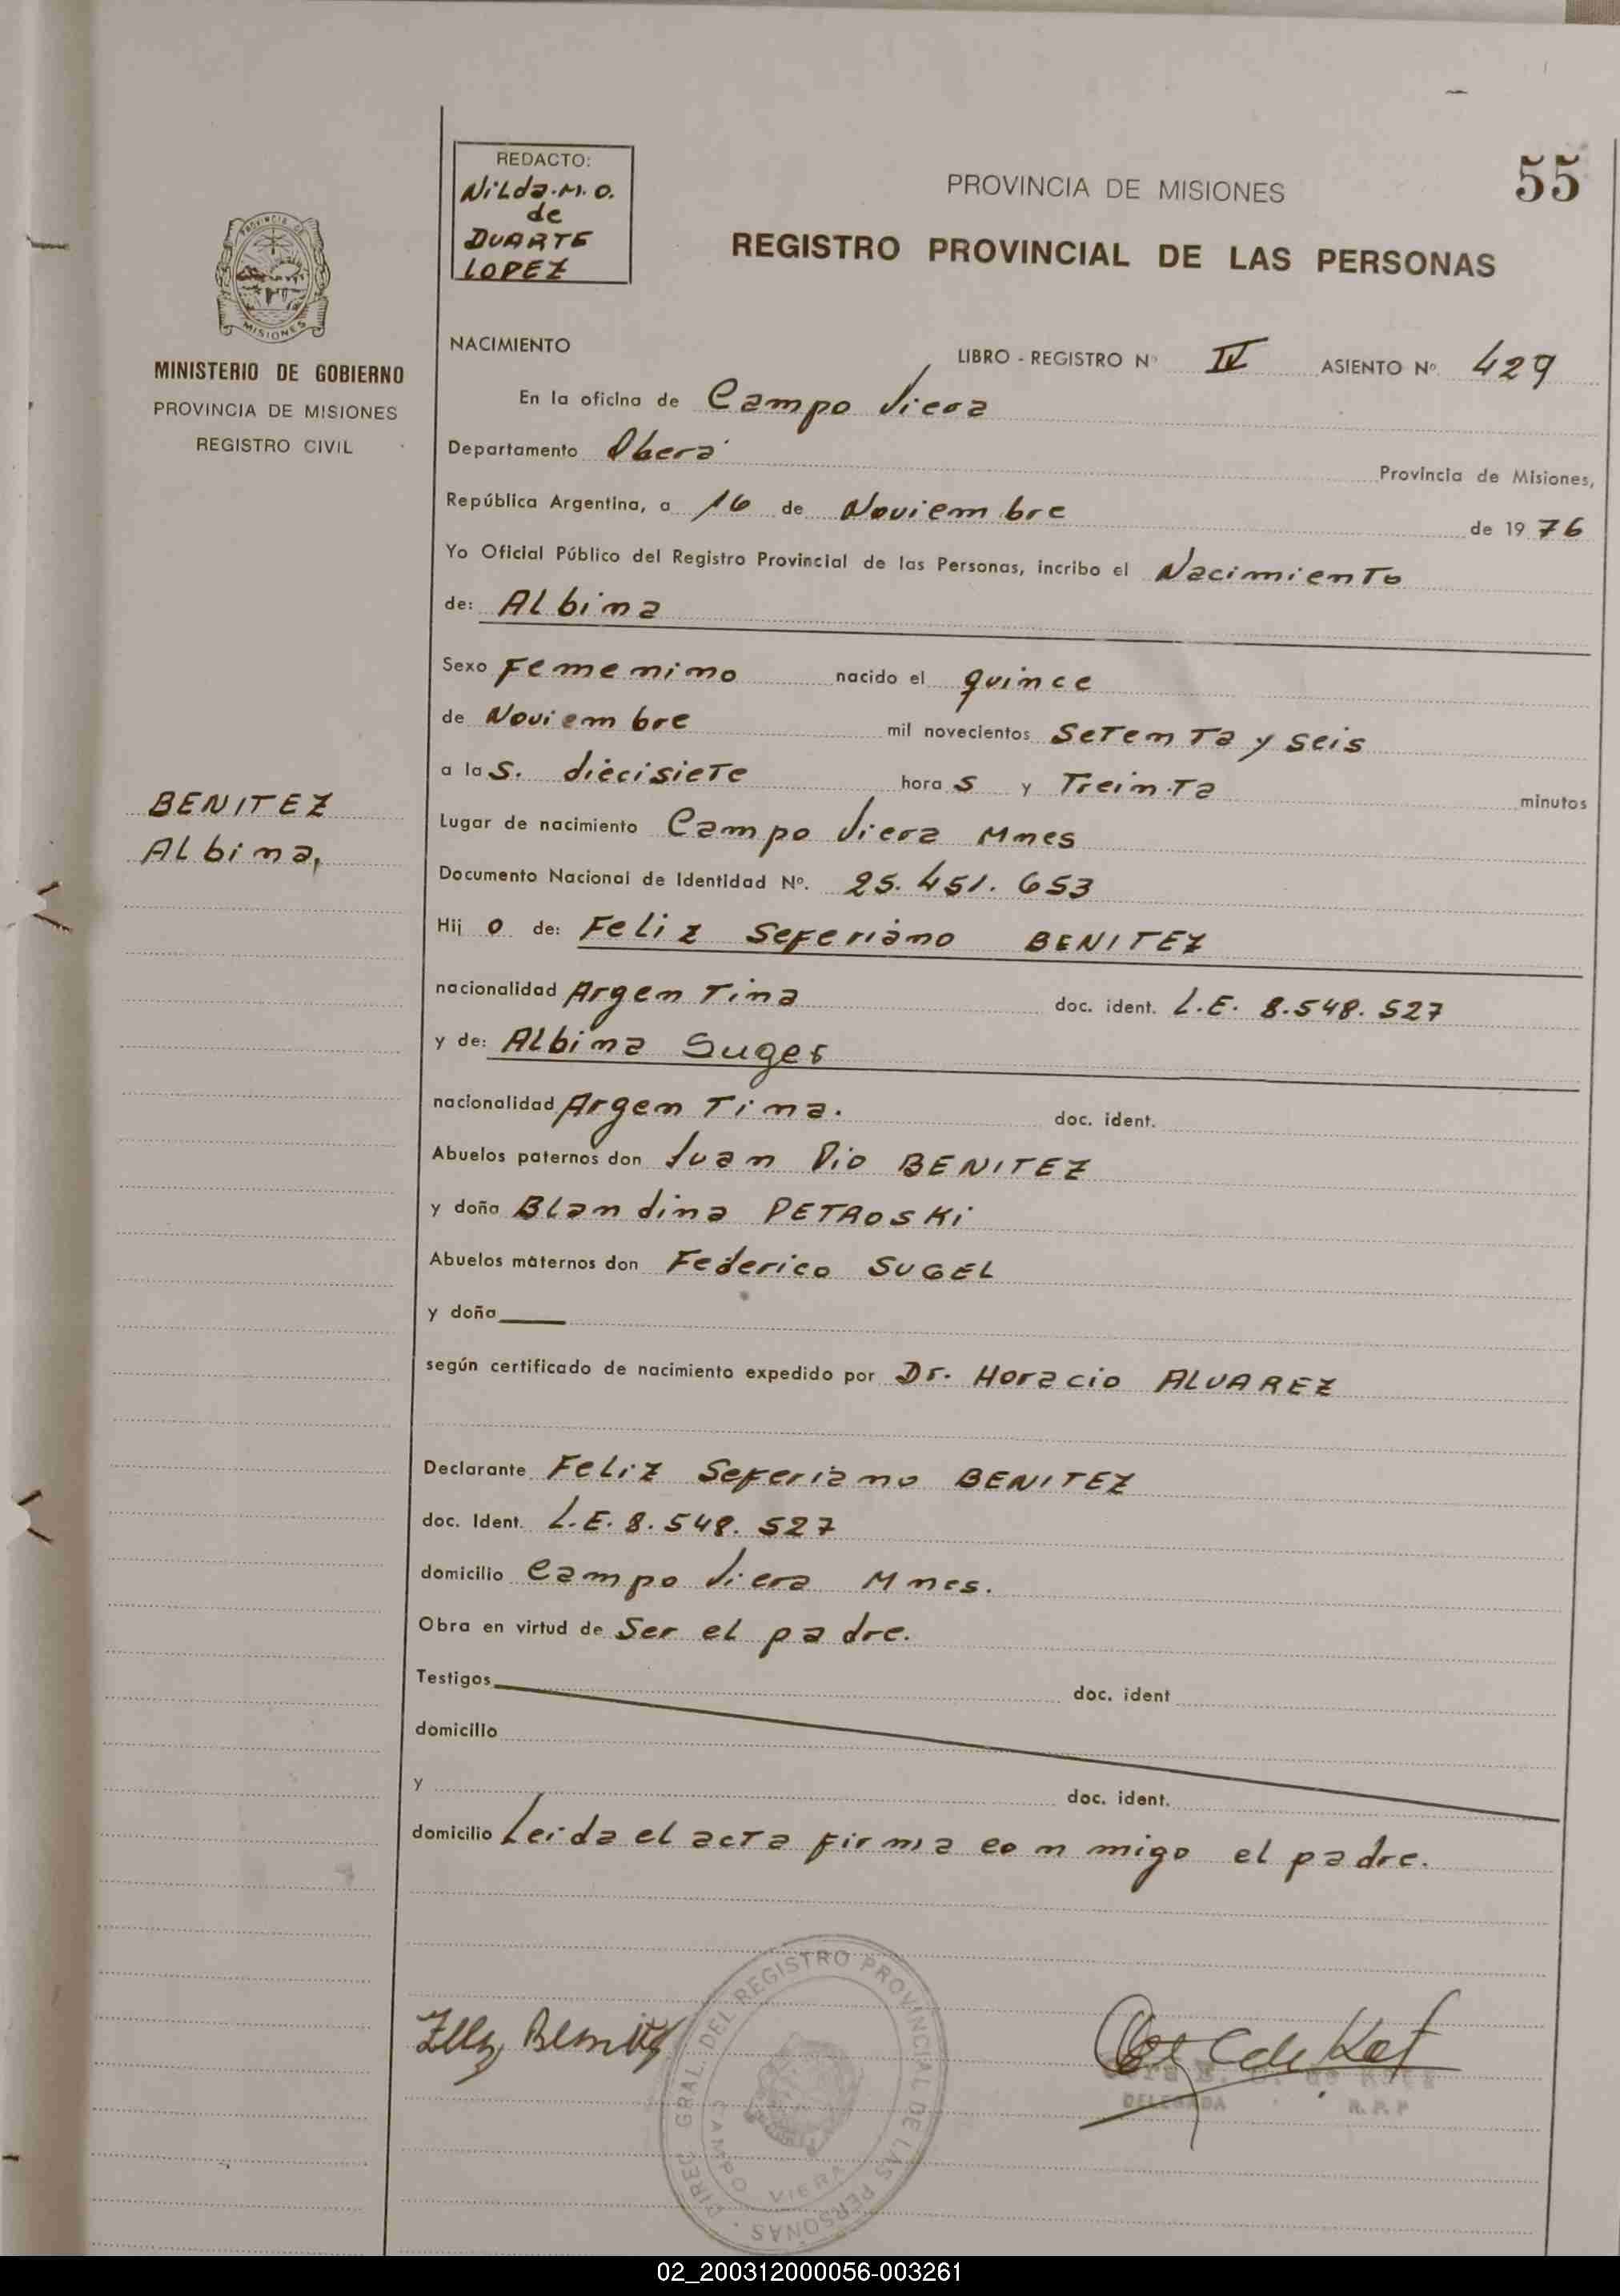 REDACTO:
Nilda.M.O.
de
DUARTE
LOPEZ
PROVINCIA DE MISIONES
55
REGISTRO PROVINCIAL DE LAS PERSONAS
PROVINCIA DE
MISIONES
MINISTERIO DE GOBIERNO
PROVINCIA DE MISIONES
REGISTRO CIVIL
BENITEZ
Albina,
NACIMIENTO LIBRO - REGISTRO Nº IV ASIENTO Nº 429
En la oficina de Campo Viera
Departamento Oberá Provincia de Misiones,
República Argentina, a 16 de Noviembre de 1976
Yo Oficial Público del Registro Provincial de las Personas, incribo el Nacimiento
de: Albina
Sexo Femenino nacido el quince
de Noviembre mil novecientos Setenta y seis
a las. diecisiete horas y Treinta minutos
Lugar de nacimiento Campo Viera Mnes
Documento Nacional de Identidad Nº. 25.451.653
Hijo de: Feliz Seferiano BENITEZ
nacionalidad Argentina doc. ident. L.E. 8.548.527
y de: Albina Suger
nacionalidad Argentina. doc. ident.
Abuelos paternos don Juan Pio BENITEZ
y doña Blandina PETROSKi
Abuelos maternos don Federico SUGEL
y doña
según certificado de nacimiento expedido por Dr. Horacio ALVAREZ
Declarante Feliz Seferiano BENITEZ
doc. Ident. L.E. 8.548.527
domicilio Campo Viera Mnes.
Obra en virtud de Ser el padre.
Testigos doc. ident
domicilio
y doc. ident.
domicilio Leida el acta firma con migo el padre.
Benitez
DIREC. GRAL. DEL REGISTRO PROVINCIAL DE LAS PERSONAS
CAMPO VIERA
DELEGADA R.P.P
02_200312000056-003261